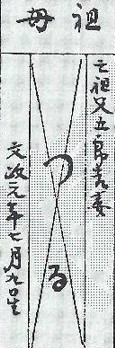 祖母
亡祖父五郎吉妻
つる
文政元年七月九日生